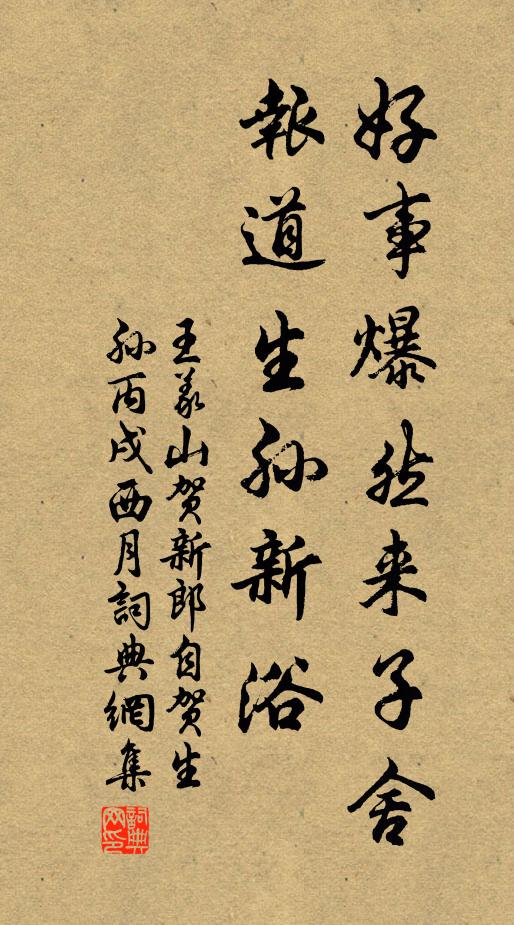 好事爆然来子舍
報道生孙新浴
王義山贺新郎自贺生
孙丙戌酉月詞典網集
詞典网印